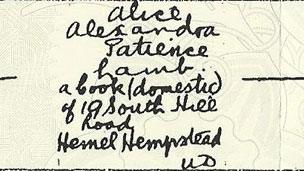 Alice
Alexandra
Patience
Lamb.
a Cook (domestic)
of 19 South Hill
Road
Hemel Hempstead
U D